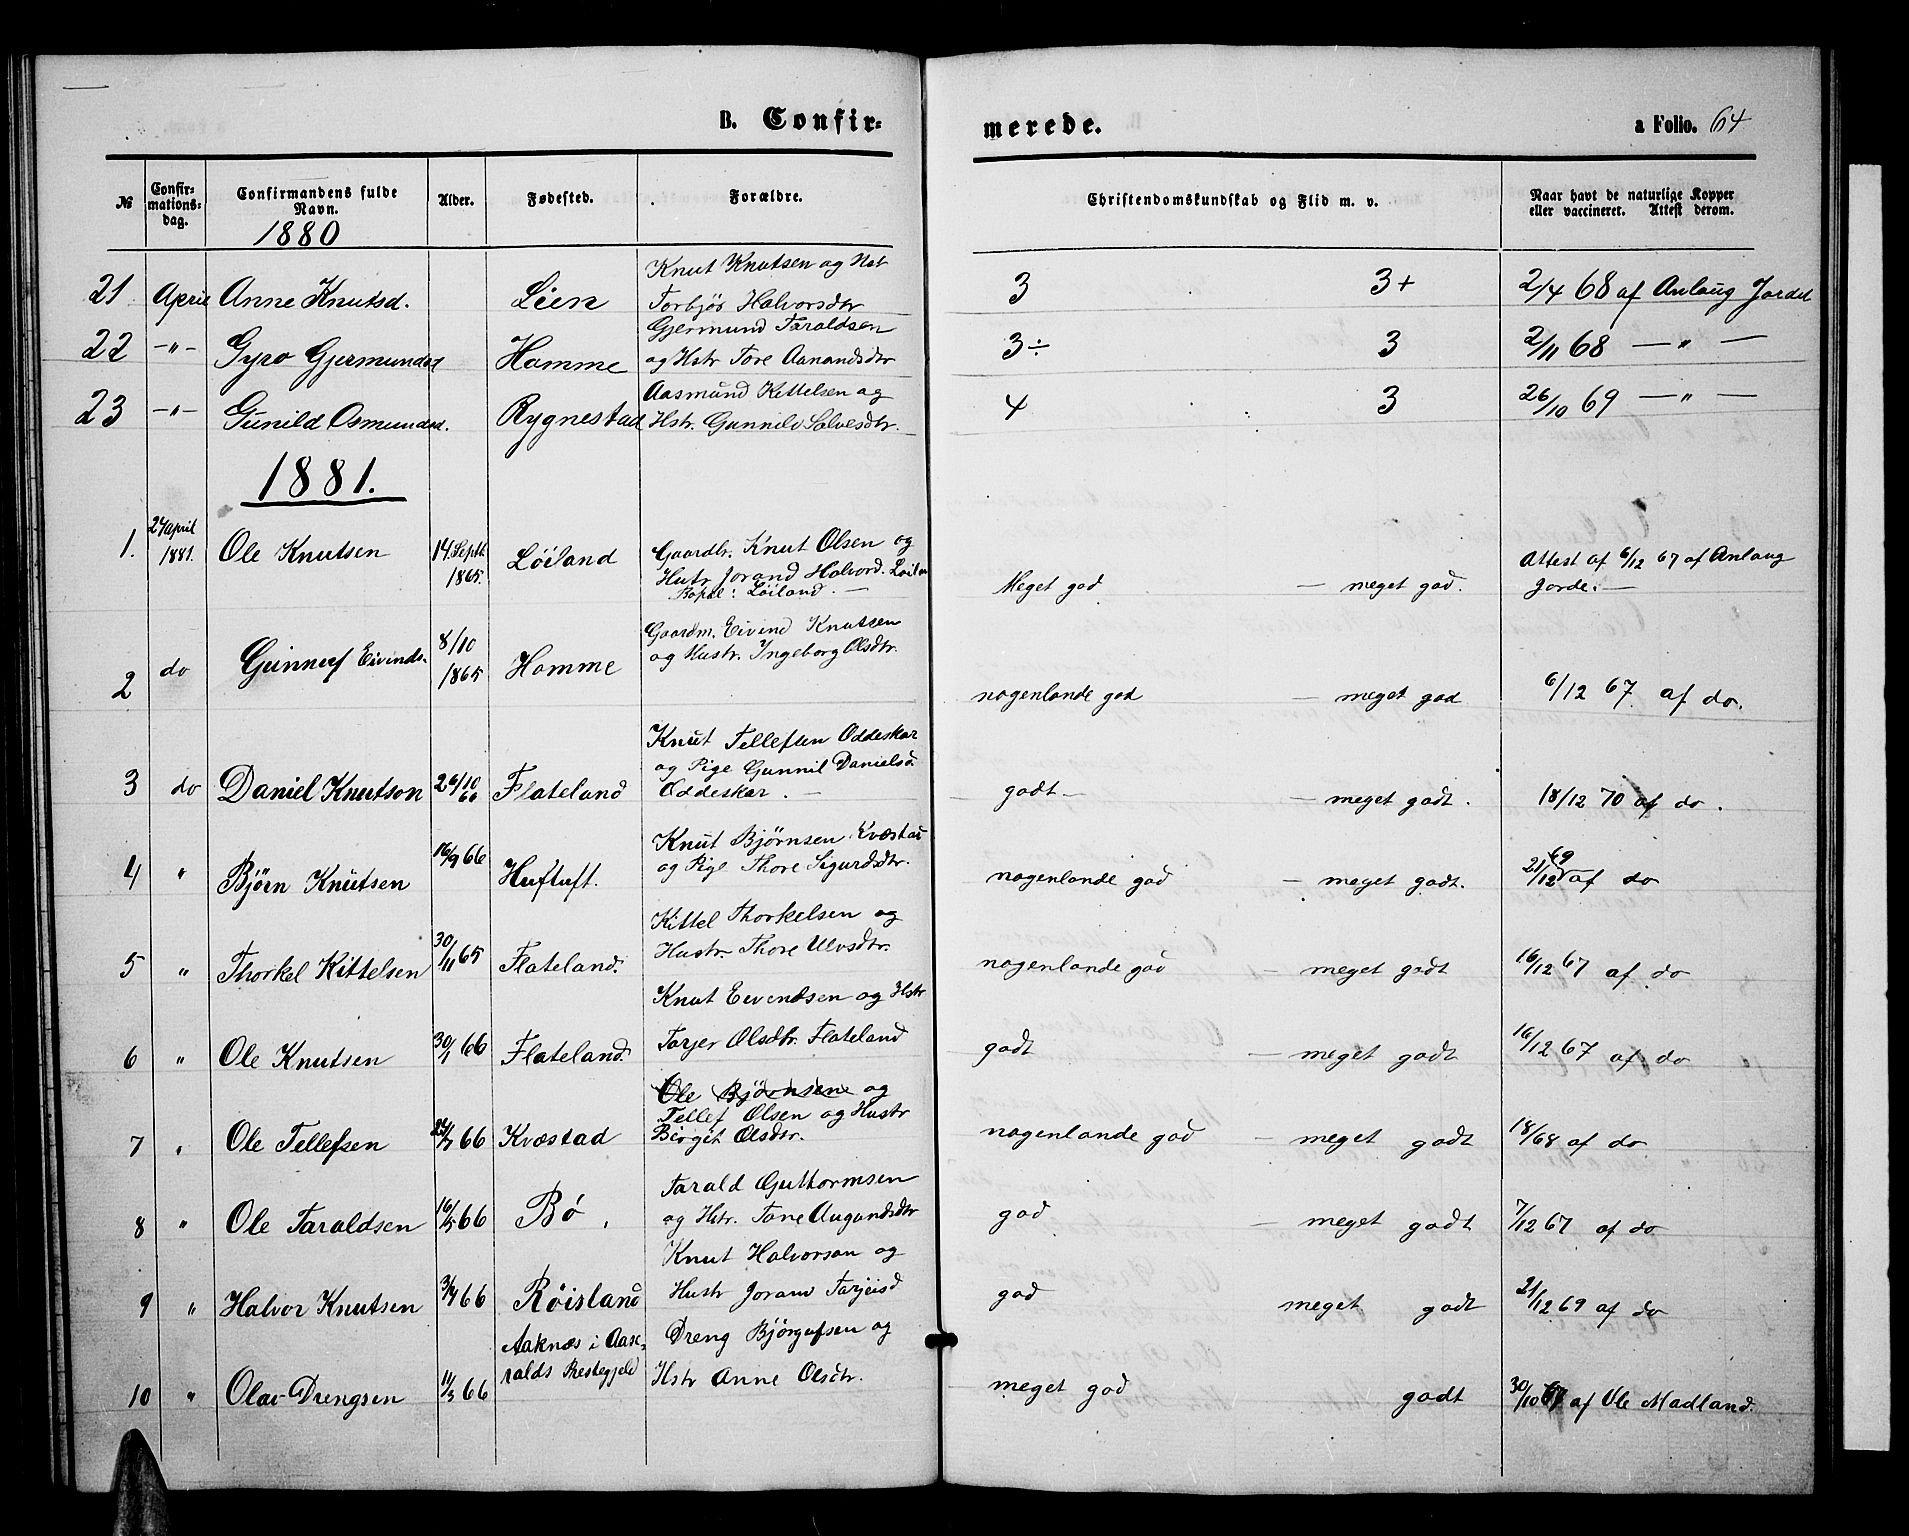 B. Confir=
merede.
a Folio. 64
№ Confir=mations=dag. Confirmandens fulde Navn. Alder. Fødested. Forældre. Christendomskundskab og Flid m. v. Naar havt de naturlige Kopper eller vaccineret. Attest derom.
1880
Knut Knutsen og Hst
21 April Anne Knutsd. Lien Torbjør Halvorsdtr 3 3+ 2/4 68 af Anlaug Jordet
Gjermund Taraldsen
22 -"- Gyro Gjermundsd Homme og Hstr Tore Aanandsdtr 3÷ 3 2/11 68 — " —
Aasmund Kittelsen og
23 -"- Gunild Osmundsd. Rygnestad Hstr. Gunnild Salvesdtr. 4 3 26/10 69 — " —
1881.
1. 24 april 1881. Ole Knutsen 14. Septb 1865. Løiland Gaardbr. Knut Olsen og
Hustr Jorand Halvord. Løilan
Bopæl: Løiland. — Meget god — meget god. Attest af 6/12 67 af Anlaug
Jorde. —
Gaardm. Eivind Knutsen
2 do Gunnuf Eivinds. 8/10 1865 Homme og Hustr. Ingeborg Olsdtr. nogenlande god — meget god 6/12 67 af do.
Knut Tellefsen Oddeskar
og Pige Gunnil Danielsd.
3 do Daniel Knutson 26/10 66 Flateland Oddeskar. — godt — — meget godt. 18/12 70 af do.
Knut Bjørnsen Kvæstad
4 " Bjørn Knutsen 16/9 66 Huftuft. og Pige Thore Sigurdsdtr. nogenlande god — meget godt. 21/12 69 af do
Kittel Thorkelsen og
5 " Thorkel Kittelsen 30/11 65 Flateland. Hustr. Thore Ulvsdtr. nogenlande god — meget godt 16/12 67 af do
Knut Eivendsen og Hstr
6 " Ole Knutsen 30/1 66 Flateland. Tarjer Olsdtr. Flateland godt — meget godt 16/12 67 af do
Ole Bjørnsen og
Tellef Olsen og Hustr
7 " Ole Tellefsen 66 Kvæstad Birgit Olsdtr. nogenlande god — meget godt 18/68 af do
Tarald Guttormsen
8 " Ole Taraldsen 16/5 66 Bø. og Hstr. Tone Augundsdtr god — meget godt 7/12 67 af do
Knut Halvorson og
9 " Halvor Knutsen 3/4 66 Røisland Hustr Joran Tarjeisd god meget godt 21/12 69 af do
Aaknæs i Aase- Dreng Bjørgufsen og
ralds Prestegjeld Hstr Anne Olsdtr.
10 " Olav Drengsen 11/3 66 meget god godt 30/10 67 af Ole Madland.